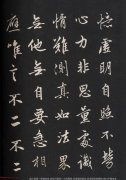 虛明自照不勞
心力非思量處識
情難測真如法界
無他無自要急相
應唯言不二不二